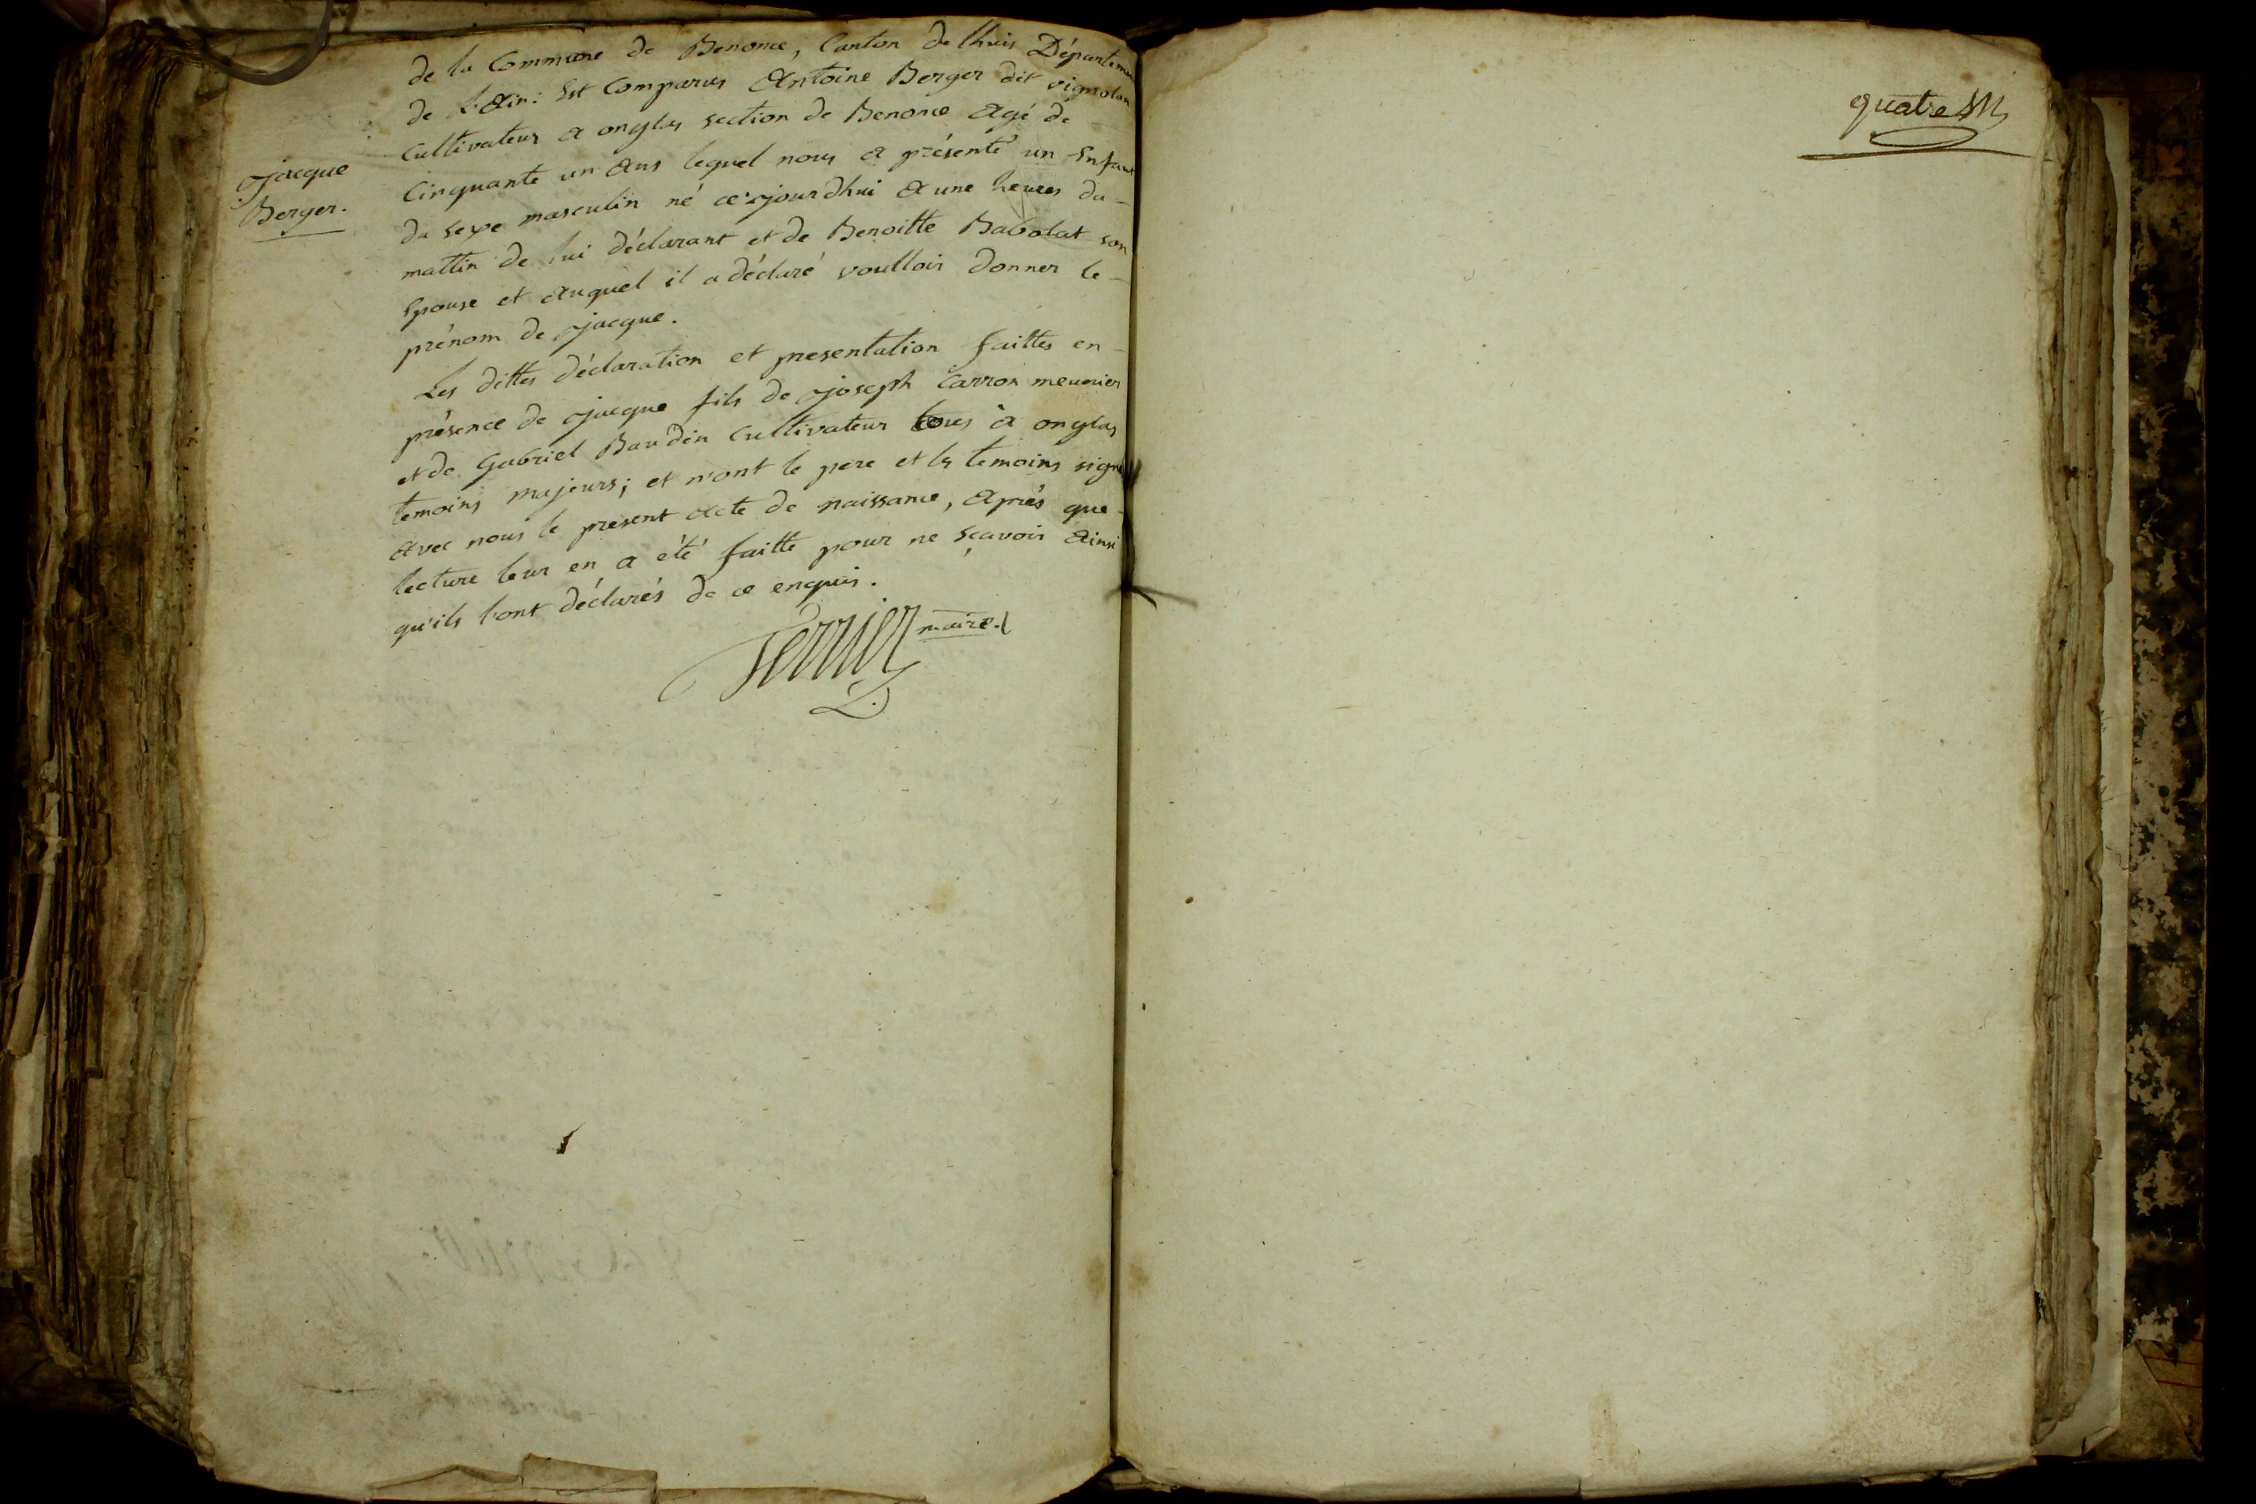 de la Commune de Benonce, Canton de lhuis Département
de L'Ain: Est Comparus Antoine Berger dit vignolan
Cultivateur a onglas section de Benonce Agé de
Cinquante un Ans lequel nous a présenté un Enfant
du sexe masculin né ce jourdhui a une heures du
mattin de lui déclarant et de Benoitte Babolat son
Epouse et Auquel il a déclaré voulloir donner le
prénom de jacque.
jacque
Berger.
Les dittes déclaration et presentation faittes en
présence de jacque fils de joseph Carron meunier
et de Gabriel Baudin Cultivateur tous à onglas
temoins majeurs; et n'ont le pere et les temoins signé
Avec nous le present Acte de naissance, Après que
lecture leur en a été faitte pour ne sçavoir Ainsi
qu'ils l'ont déclarés de ce enquis.
Ferrier maire
quatre